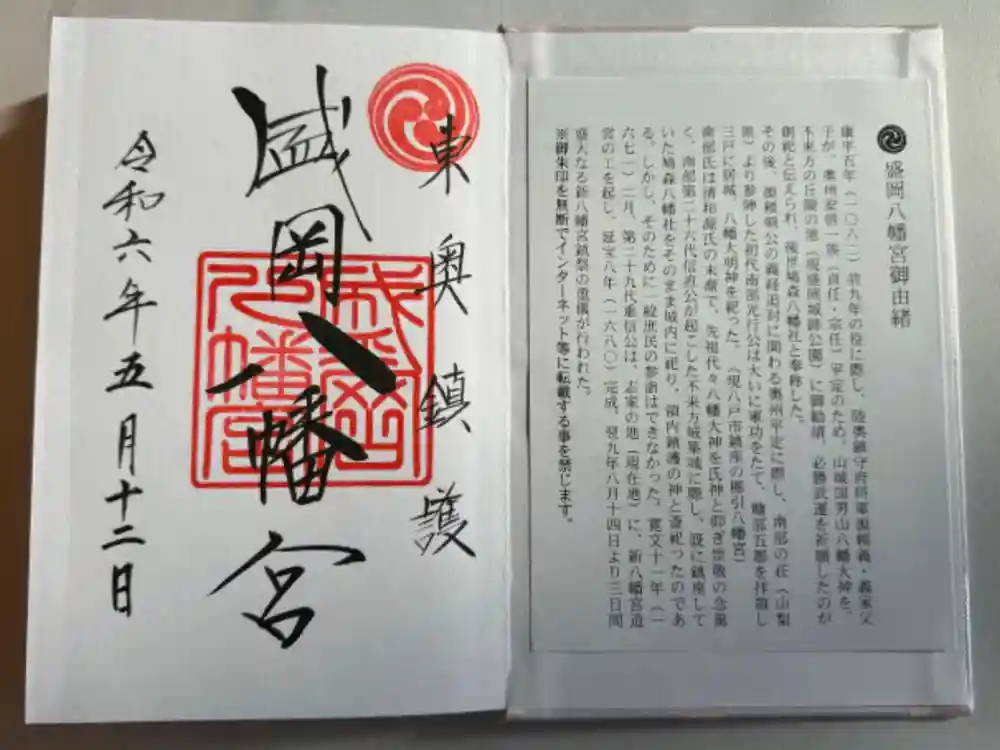 盛岡八幡宮御由緒
康平五年(一〇六二)前九年の役に際し、陸奥鎮守府将軍源頼義・義家父
子が、奥州安倍一族(貞任・宗任)平定のため、山城国男山八幡大神を、
不来方の丘陵の地(現盛岡城跡公園)に御勧請、必勝武運を祈願したのが
創祀と伝えられ、後世鳩森八幡社と奉称した。
その後、源頼朝公の義経追討に関わる奥州平定に際し、南部の荘(山梨
県)より参陣した初代南部光行公は大いに軍功をたて、糠部五郡を拝領し
三戸に居城、八幡大明神を祀った。(現八戸市鎮座の櫛引八幡宮)
南部氏は清和源氏の末裔で、先祖代々八幡大神を氏神と仰ぎ崇敬の念篤
く、南部第二十六代信直公が起こした不来方城築城に際し、既に鎮座して
いた鳩森八幡社をそのまま城内に祀り、領内鎮護の神と斎祀ったのであ
る。しかし、そのために一般庶民の参詣はできなかった。寛文十一年(一
六七一)二月、第二十九代重信公は、志家の地(現在地)に、新八幡宮造
営の工を起し、延宝八年(一六八〇)完成。翌九年八月十四日より三日間
盛大なる新八幡宮鎮祭の重儀が行われた。
※御朱印を無断でインターネット等に転載する事を禁じます。
東奥鎮護
盛岡八幡宮
盛岡八幡宮
令和六年五月十二日